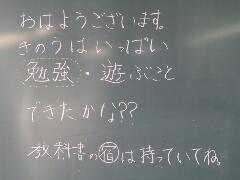 おはようございます。
きのうはいっぱい
勉強・遊ぶこと
できたかな??
教科書の宿は持っていてね。